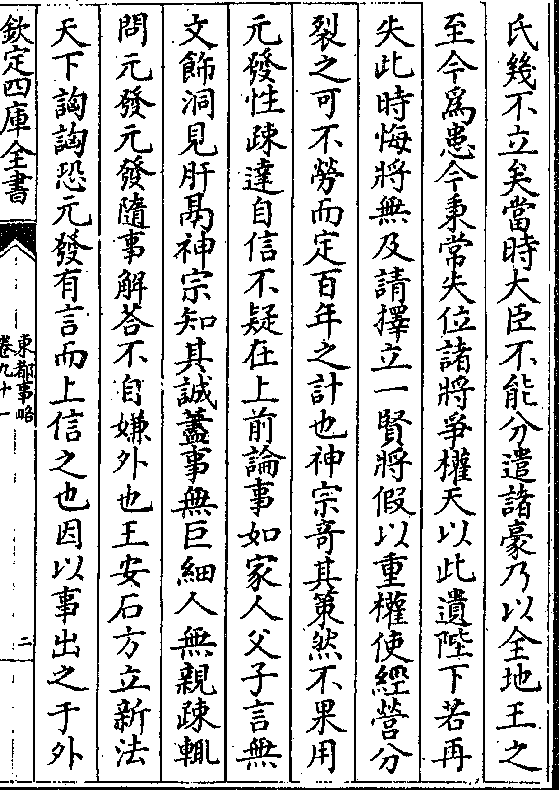 氏幾不立矣當時大臣不能分遣諸豪乃以全地王之
至今為患今秉常失位諸將爭權天以此遺陛下若再
失此時悔將無及請擇立一賢將假以重權使經營分
裂之可不勞而定百年之計也神宗竒其策然不果用
元發性疎達自信不疑在上前論事如家人父子言無
文飾洞見肝鬲神宗知其誠藎事無巨細人無親疎輒
問元發元發隨事解答不自嫌外也王安石方立新法
天下訩訩恐元發有言而上信之也因以事出之于外
欽定四庫全書
東都事略
卷九十一
二